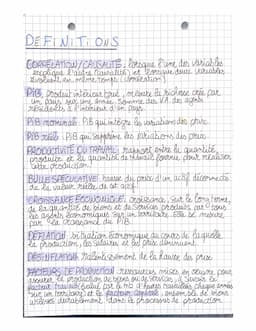 DÉFINITIONS
CORRÉLATION / CAUSALITÉ : lorsque l'une des variables
explique l'autre (causalité) et lorsque deux variables
évoluent en même temps (corrélation)
PIB : produit intérieur brut, mesure la richesse crée par
un pays sur une année. Somme des VA des agents
résidents à l'intérieur d'un pays
PIB nominal : PIB qui intègre les variations des prix
PIB réel : PIB qui supprime les variations des prix
PRODUCTIVITÉ DU TRAVAIL : rapport entre la quantité
produite et la quantité de travail fournie pour réaliser
cette production
BULLE SPÉCULATIVE : hausse du prix d'un actif déconnecté
de la valeur réelle de cet actif
CROISSANCE ÉCONOMIQUE : croissance, sur le long terme,
de la quantité de biens et de services produits par tous
les agents économiques sur un territoire. Elle se mesure
par la croissance du PIB.
DÉFLATION : situation économique au cours de laquelle
la production, les salaires et les prix diminuent
DÉSINFLATION : ralentissement de la hausse des prix
FACTEURS DE PRODUCTION : ressources mises en oeuvre pour
assurer la production de biens ou de services, à savoir le
facteur travail (évalué par le nb d'heures travaillées chaque année
sur un territoire) et le facteur capital, ensemble de biens
utilisés durablement dans le processus de production